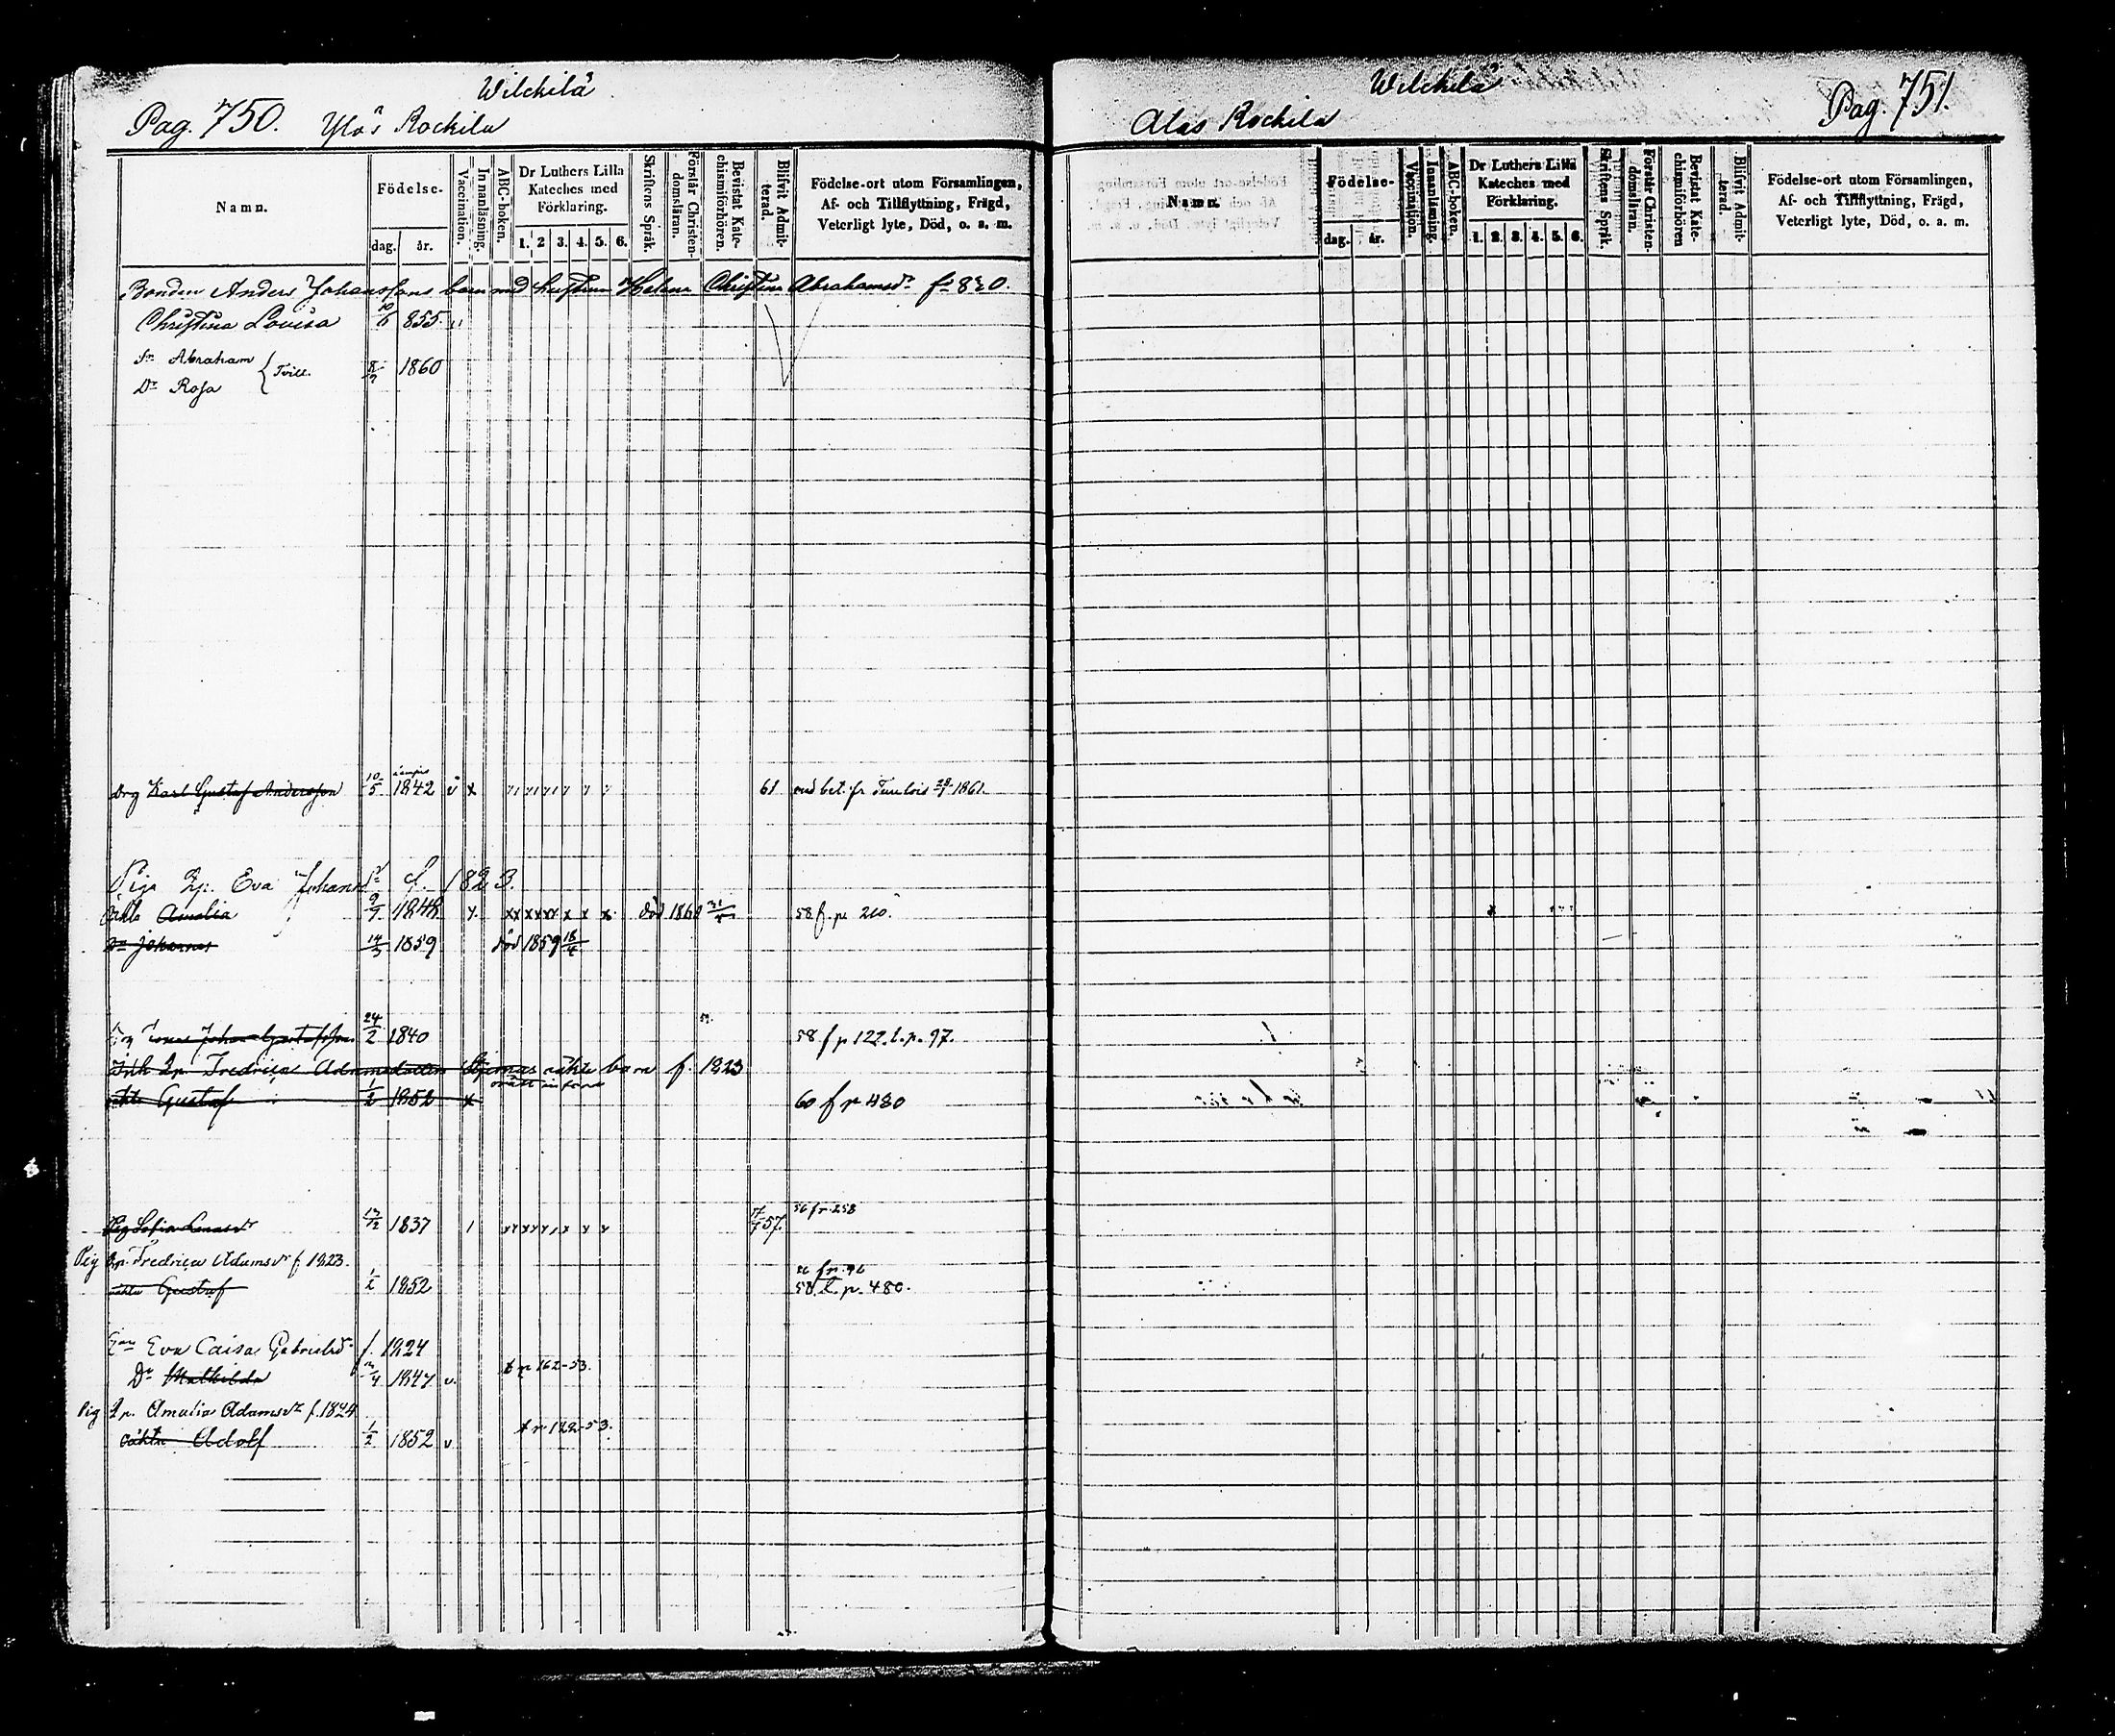 Wilckilä
Pag. 750. Ylös Rockila
Namn.
Födelse-
dag. år.
Vaccination.
Innanläsning.
ABC-boken.
Dr Luthers Lilla Kateches med Förklaring.
1. 2 3. 4. 5. 6.
Skriftens Språk.
Förstår Christen-domsläran.
Bevistat Kate-chismiförhören.
Blifvit Admit-terad.
Födelse-ort utom Församlingen,
Af- och Tillflyttning, Frägd,
Veterligt lyte, Död, o. a. m.
Bonden Anders Johanssons barn med hustrun Helena Christina Abrahamsdr
Christina Lovisa 855
Sn Abraham
Tvill. 1860
Dr Rosa
Drg Karl Gustaf Andersson 10/5 1842 v x 61 med bet. fr 1861.
Piga Eva Johansdr f. 1823.
Amalia 9/7 1848 x xxxxxx x x x död 1860 58 f. p. 210.
Johannes 14/3 1859 död 1859 18/4
Johan Gustafsson 24/2 1840 58 f p 122. l. p. 97.
Fredrica Adamsdotter oäkta barn f. 1823
Gustaf 1/2 1852 x 60 f p 480
Pig Sofia 1837 57. 56 fr. 258
Pig Fredrica Adamsdr f. 1823.
56 fr. 96
Gustaf 1/2 1852 58. l. p. 480.
Eva Caisa Gabrielsd. f. 1824
Dr Mathilda 1847 v. t p 162-53.
Pig Amalia Adamsdr f. 1824
oäkta Adolf 1/2 1852 v t p 122-53.
Wilckilä
Alas Rockila Pag. 751.
Namn.
Födelse-
dag. år.
Vaccination.
Innanläsning.
ABC-boken.
Dr Luthers Lilla Kateches med Förklaring.
1. 2. 3. 4. 5. 6.
Skriftens Språk.
Förstår Christen-domsläran.
Bevistat Kate-chismiförhören
Blifvit Admit-terad.
Födelse-ort utom Församlingen,
Af- och Tillflyttning, Frägd,
Veterligt lyte, Död, o. a. m.